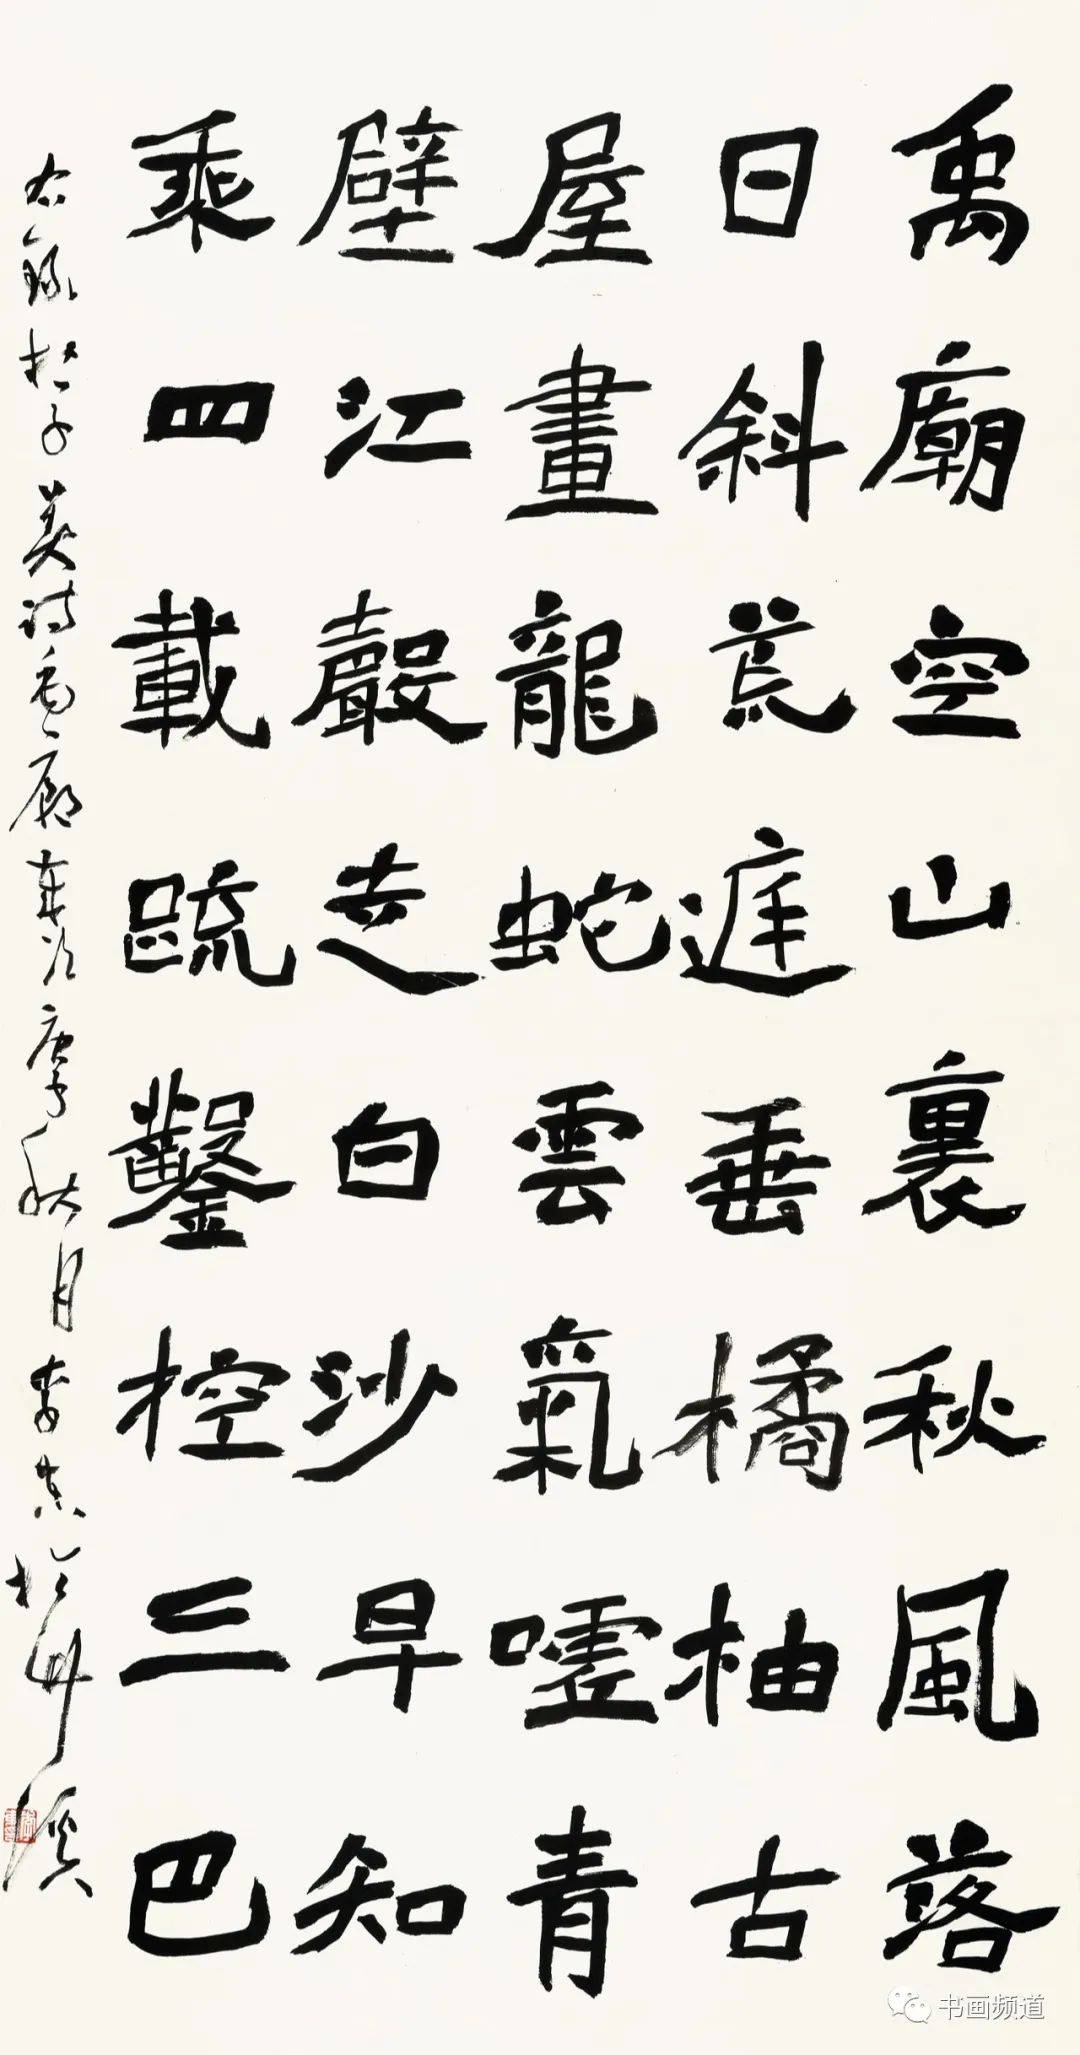 禹廟空山裏秋風落
日斜荒遅垂橘柚古
屋畫龍蛇雲氣嘘青
壁江聲走白沙早知
乘四載疏鑿控三巴
右錄杜子美詩禹廟 庚子秋月李
书画频道